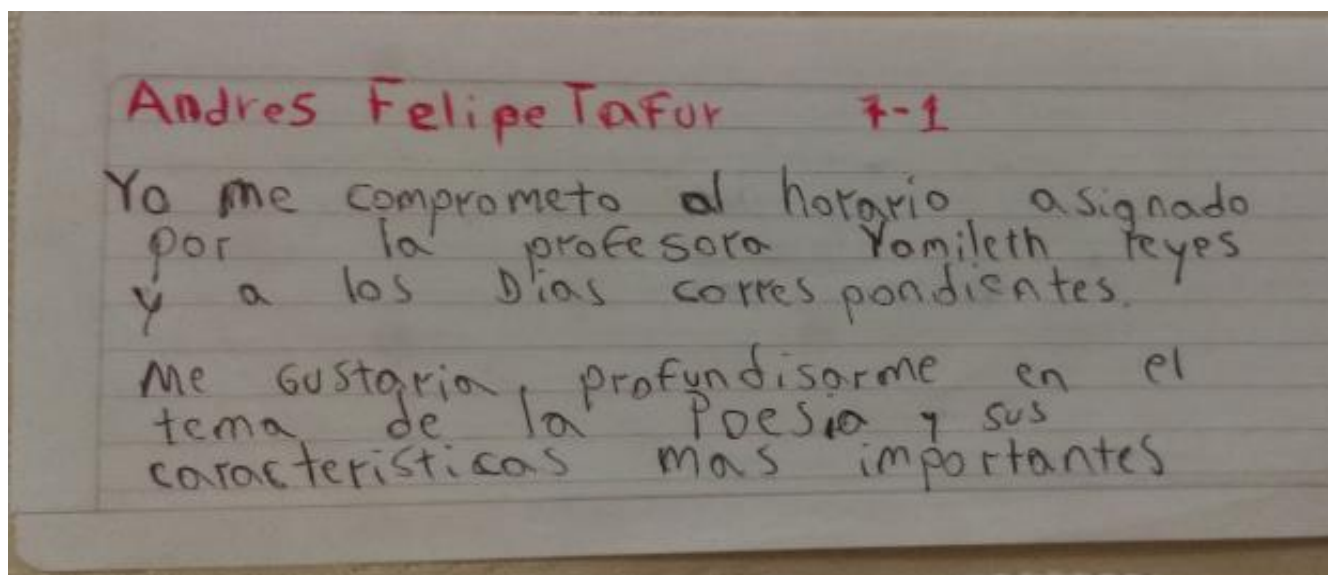 Andres Felipe Tafur 7-1
Yo me comprometo al horario asignado
por la profesora Yamileth reyes
y a los Dias correspondientes.
Me Gustaria, profundisarme en el
tema de la Poesia y sus
caracteristicas mas importantes